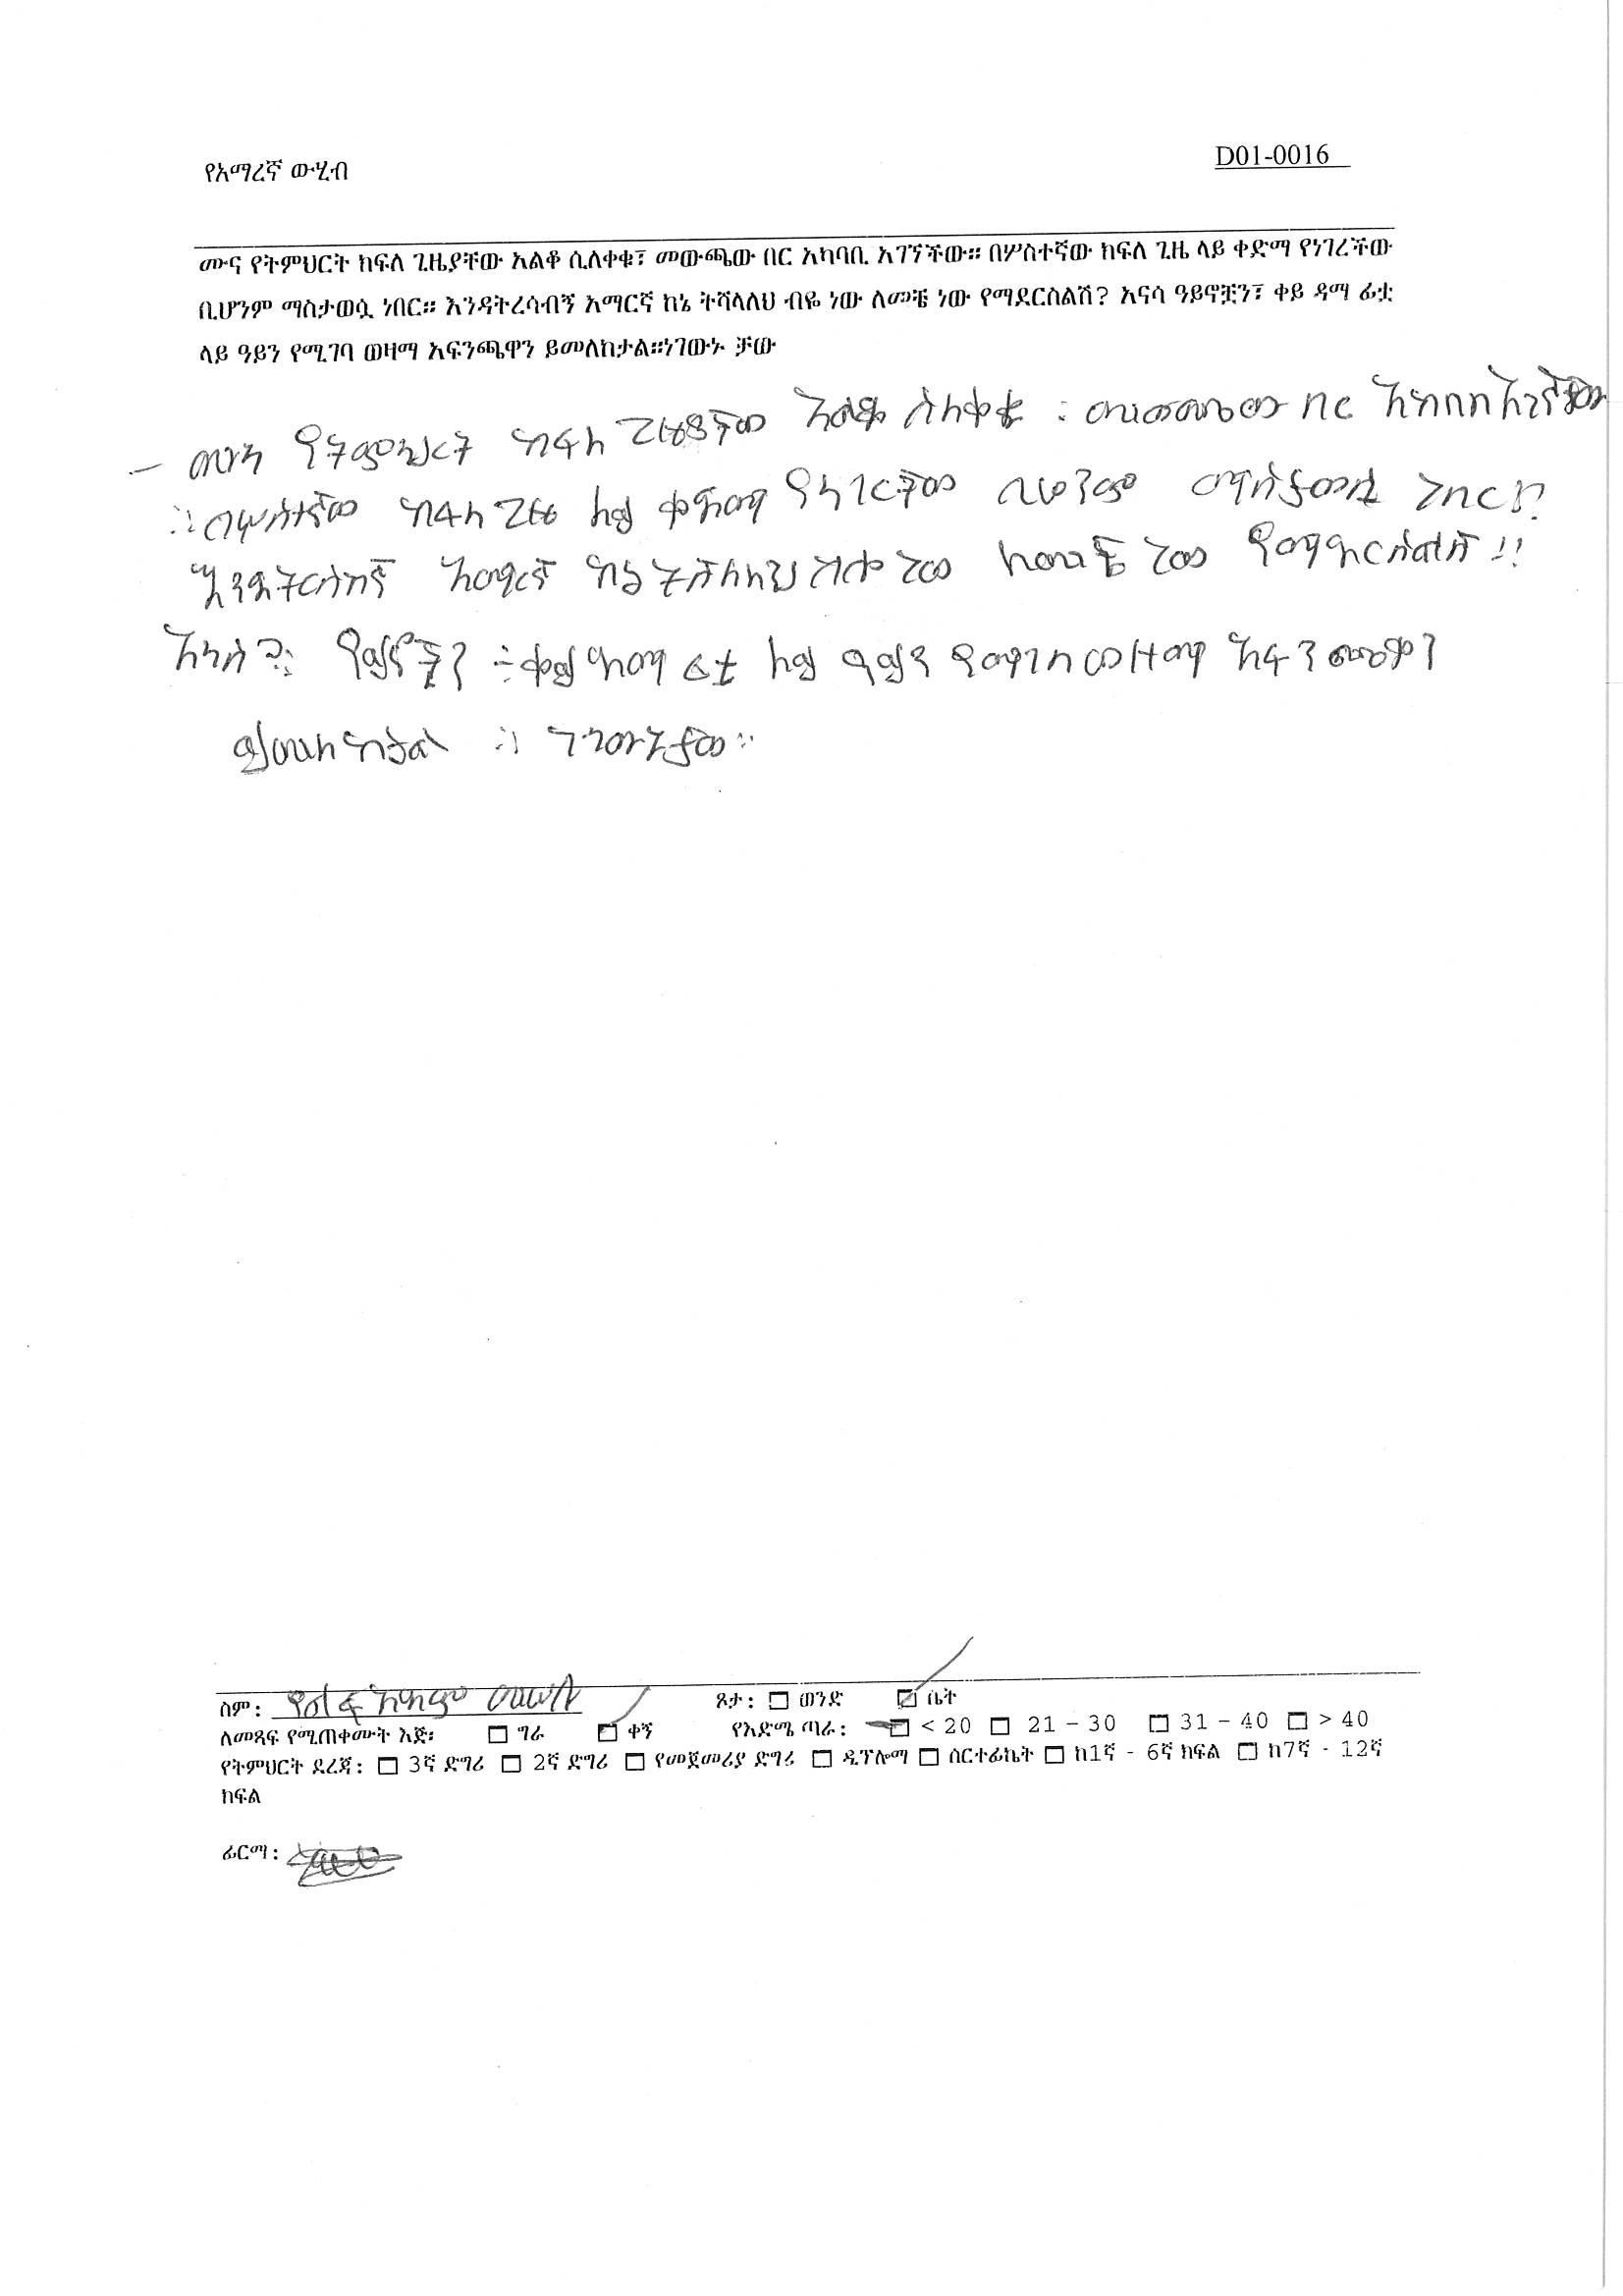 የአማረኛ ውሂብ
D01-0016
ሙና የትምህርት ክፍለ ጊዜያቸው አልቆ ሲለቀቁ፣ መውጫው በር አካባቢ አገኘችው። በሦስተኛው ክፍለ ጊዜ ላይ ቀድማ የነገረችው
ቢሆንም ማስታወሷ ነበር። እንዳትረሳብኝ አማርኛ ከኔ ትሻላለህ ብዬ ነው ለመቼ ነው የማደርስልሽ? አናሳ ዓይኖቿን፣ ቀይ ዳማ ፊቷ
ላይ ዓይን የሚገባ ወዛማ አፍንጫዋን ይመለከታል።ነገውኑ ቻው
– ሙና የትምህርት ክፍለ ጊዜያቸው አልቆ ሲለቀቁ : መውጫው በር
።በሦስተኛው ክፍለ ጊዜ ላይ ቀድማ የነገርችው ቢሆንም ማስታወሷ ነበር
እንዳትረሳብኝ አማርኛ ከኔ ትሻላለህ ነው ለመቼ ነው የማዳርስልሽ !!
አናሳ ቀይ ዳማ ፊቷ ላይ ዓይን የማገባ ወዛማ አፍንጫዋን
ይመለከታል ። ነገውኑ ቻው ።
ስም: ጾታ: ወንድ ሴት
ለመጻፍ የሚጠቀሙት እጅ፡ ግራ ቀኝ የእድሜ ጣራ: < 20 21 – 30 31 – 40 > 40
የትምህርት ደረጃ: 3ኛ ድግሪ 2ኛ ድግሪ የመጀመሪያ ድግሪ ዲፕሎማ ሰርተፊኬት ከ1ኛ - 6ኛ ክፍል ከ7ኛ - 12ኛ
ክፍል
ፊርማ: